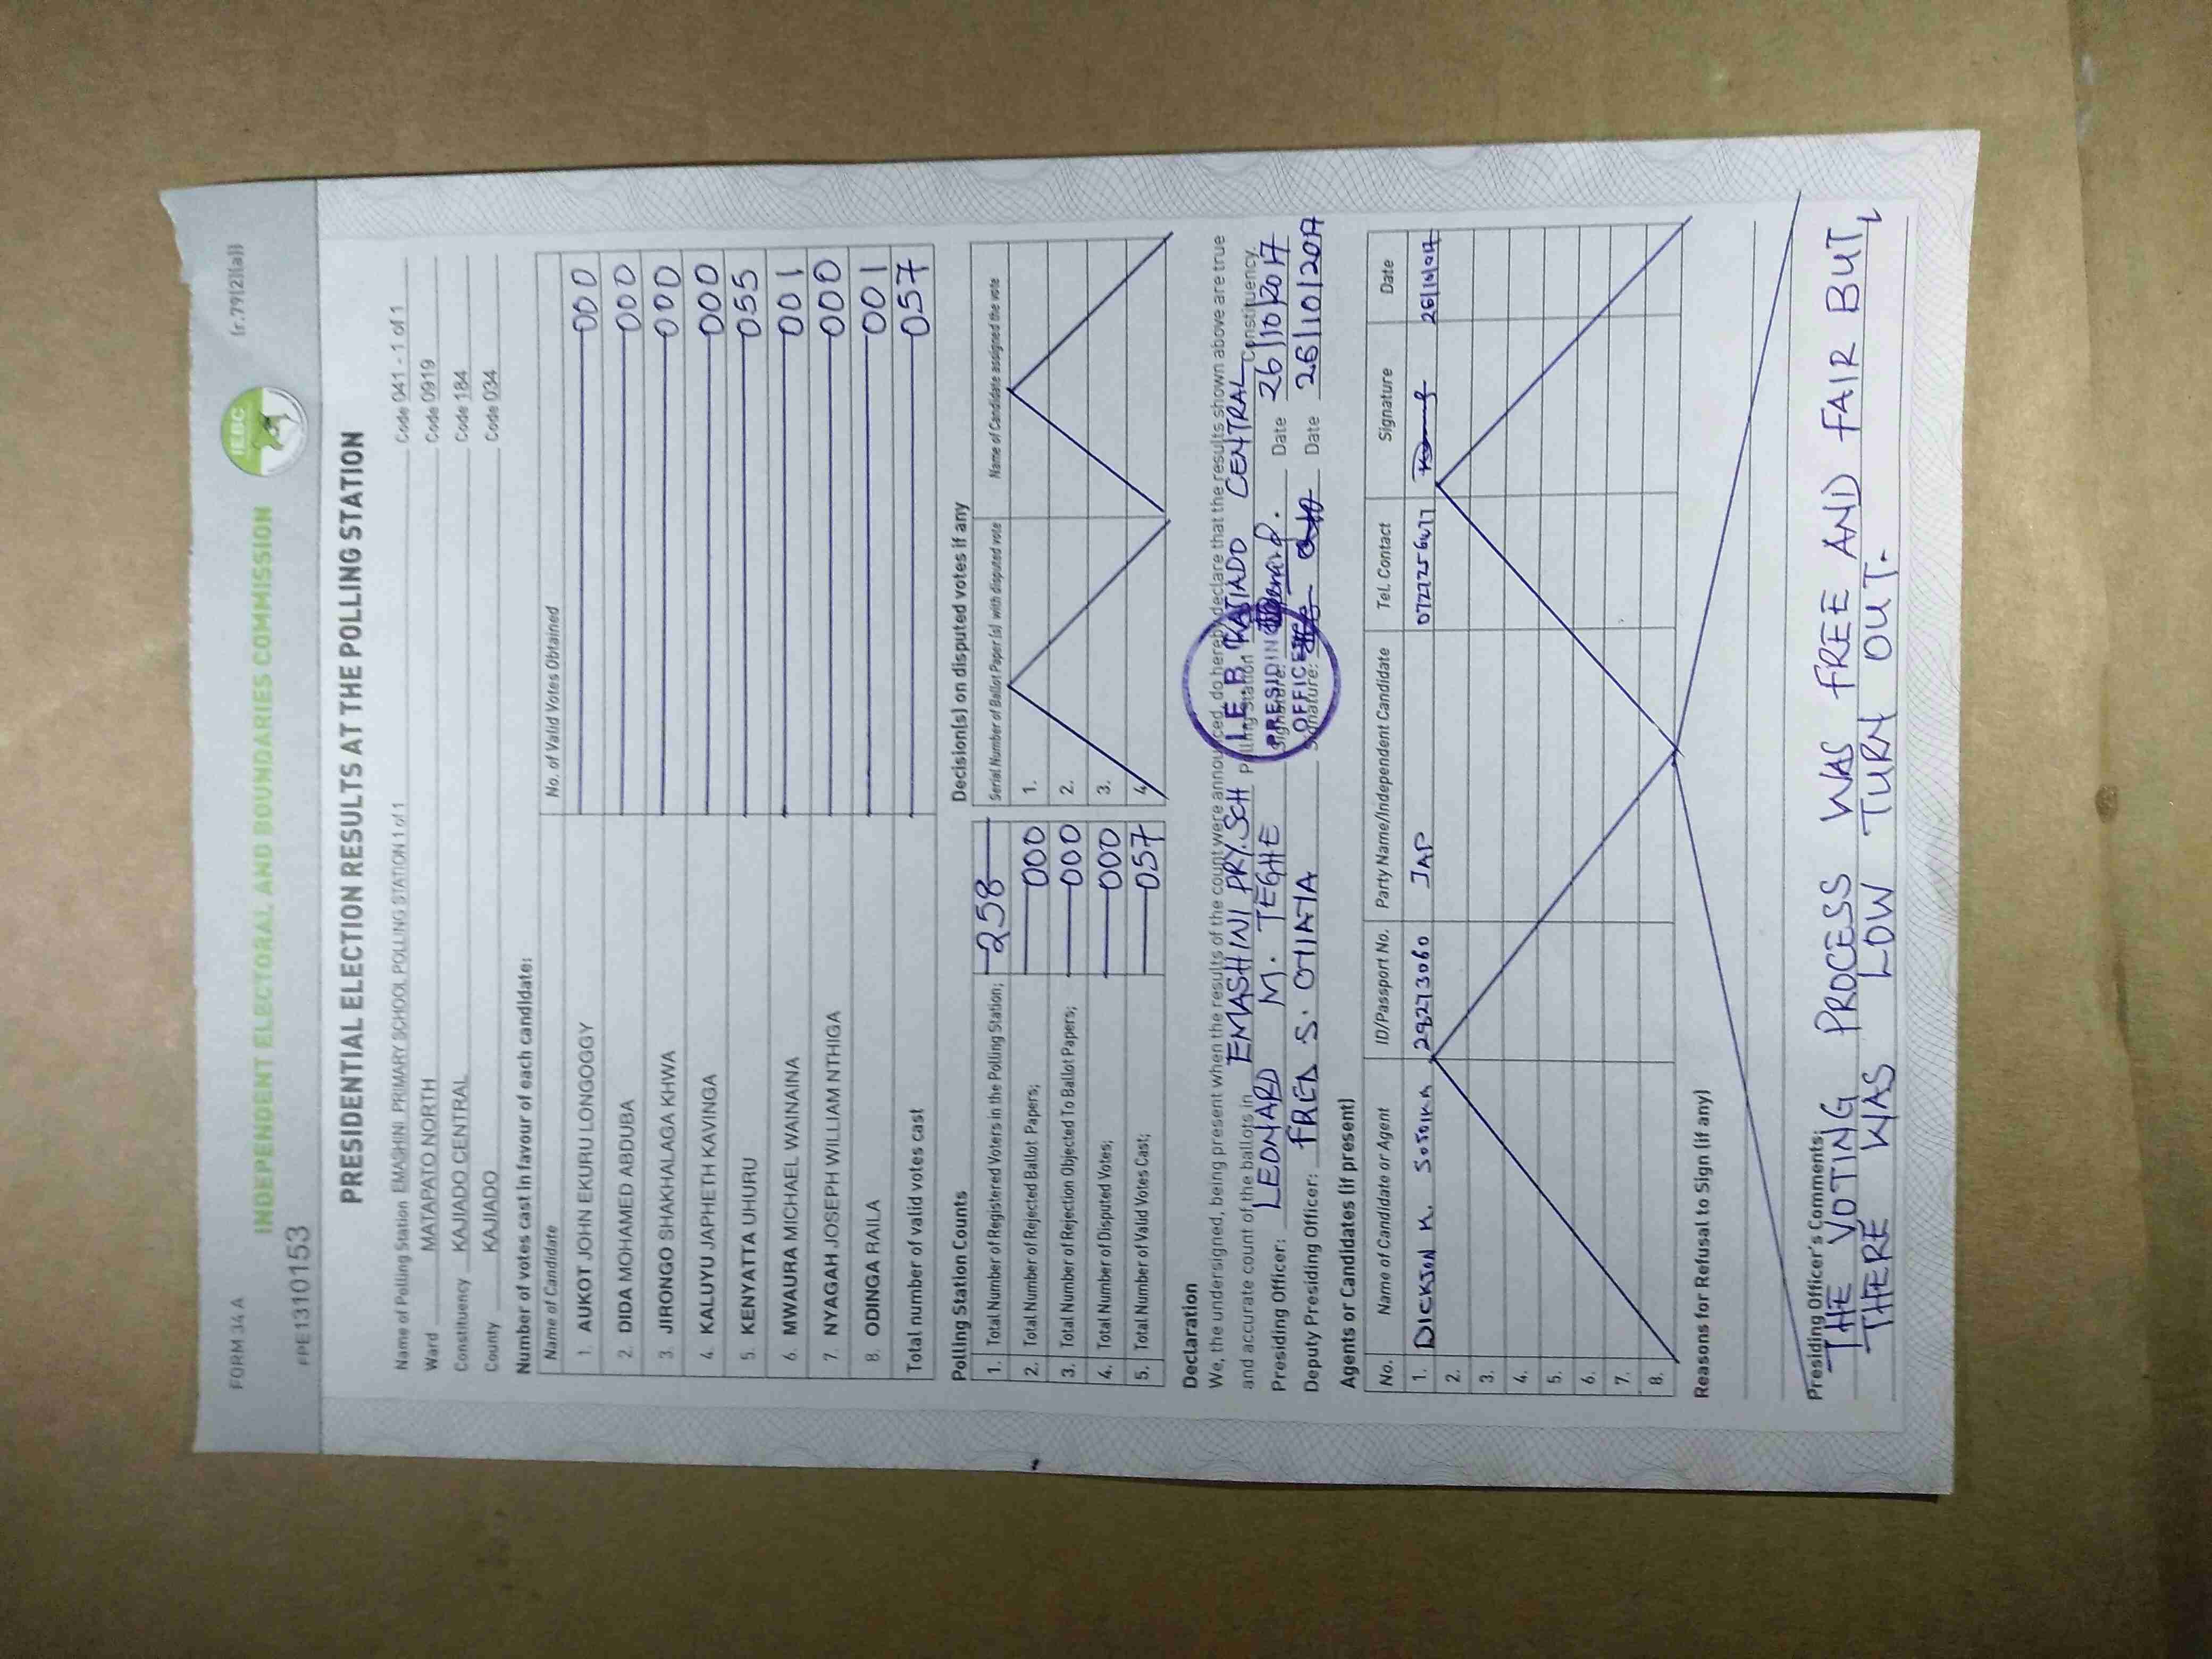 FORM 34 A
(r.79(2)(a))
IEBC
INDEPENDENT ELECTORAL AND BOUNDARIES COMMISSION
PPE1310153
PRESIDENTIAL ELECTION RESULTS AT THE POLLING STATION
Name of Polling Station EMASHINI PRIMARY SCHOOL POLLING STATION 1 of 1 Code 041 - 1 of 1
Ward MATAPATO NORTH Code 0919
Constituency KAJIADO CENTRAL Code 184
County KAJIADO Code 034
Number of votes cast in favour of each candidate:
Name of Candidate No. of Valid Votes Obtained
1. AUKOT JOHN EKURU LONGOGGY 000
2. DIDA MOHAMED ABDUBA 000
3. JIRONGO SHAKHALAGA KHWA 000
4. KALUYU JAPHETH KAVINGA 000
5. KENYATTA UHURU 055
6. MWAURA MICHAEL WAINAINA 001
7. NYAGAH JOSEPH WILLIAM NTHIGA 000
8. ODINGA RAILA 001
Total number of valid votes cast 057
Polling Station Counts
1. Total Number of Registered Voters in the Polling Station; 258
2. Total Number of Rejected Ballot Papers; 000
3. Total Number of Rejection Objected To Ballot Papers; 000
4. Total Number of Disputed Votes; 000
5. Total Number of Valid Votes Cast; 057
Decision(s) on disputed votes if any
Serial Number of Ballot Paper (s) with disputed vote Name of Candidate assigned the vote
1.
2.
3.
4.
Declaration
We, the undersigned, being present when the results of the count were announced, do hereby declare that the results shown above are true
and accurate count of the ballots in EMASHINI PRY. SCH Polling Station KAJIADO CENTRAL Constituency.
Presiding Officer: LEONARD M. TEGHE Signature: Date 26/10/2017
Deputy Presiding Officer: FRED S. Signature: Date 26/10/2017
I.E.B.C
PRESIDING
OFFICER
Agents or Candidates (if present)
No. Name of Candidate or Agent ID/Passport No. Party Name/Independent Candidate Tel. Contact Signature Date
1. DICKSON K. 29273060 JAP 26/10/2017
2.
3.
4.
5.
6.
7.
8.
Reasons for Refusal to Sign (if any)
Presiding Officer's Comments;
THE VOTING PROCESS WAS FREE AND FAIR BUT,
THERE WAS LOW TURN OUT.